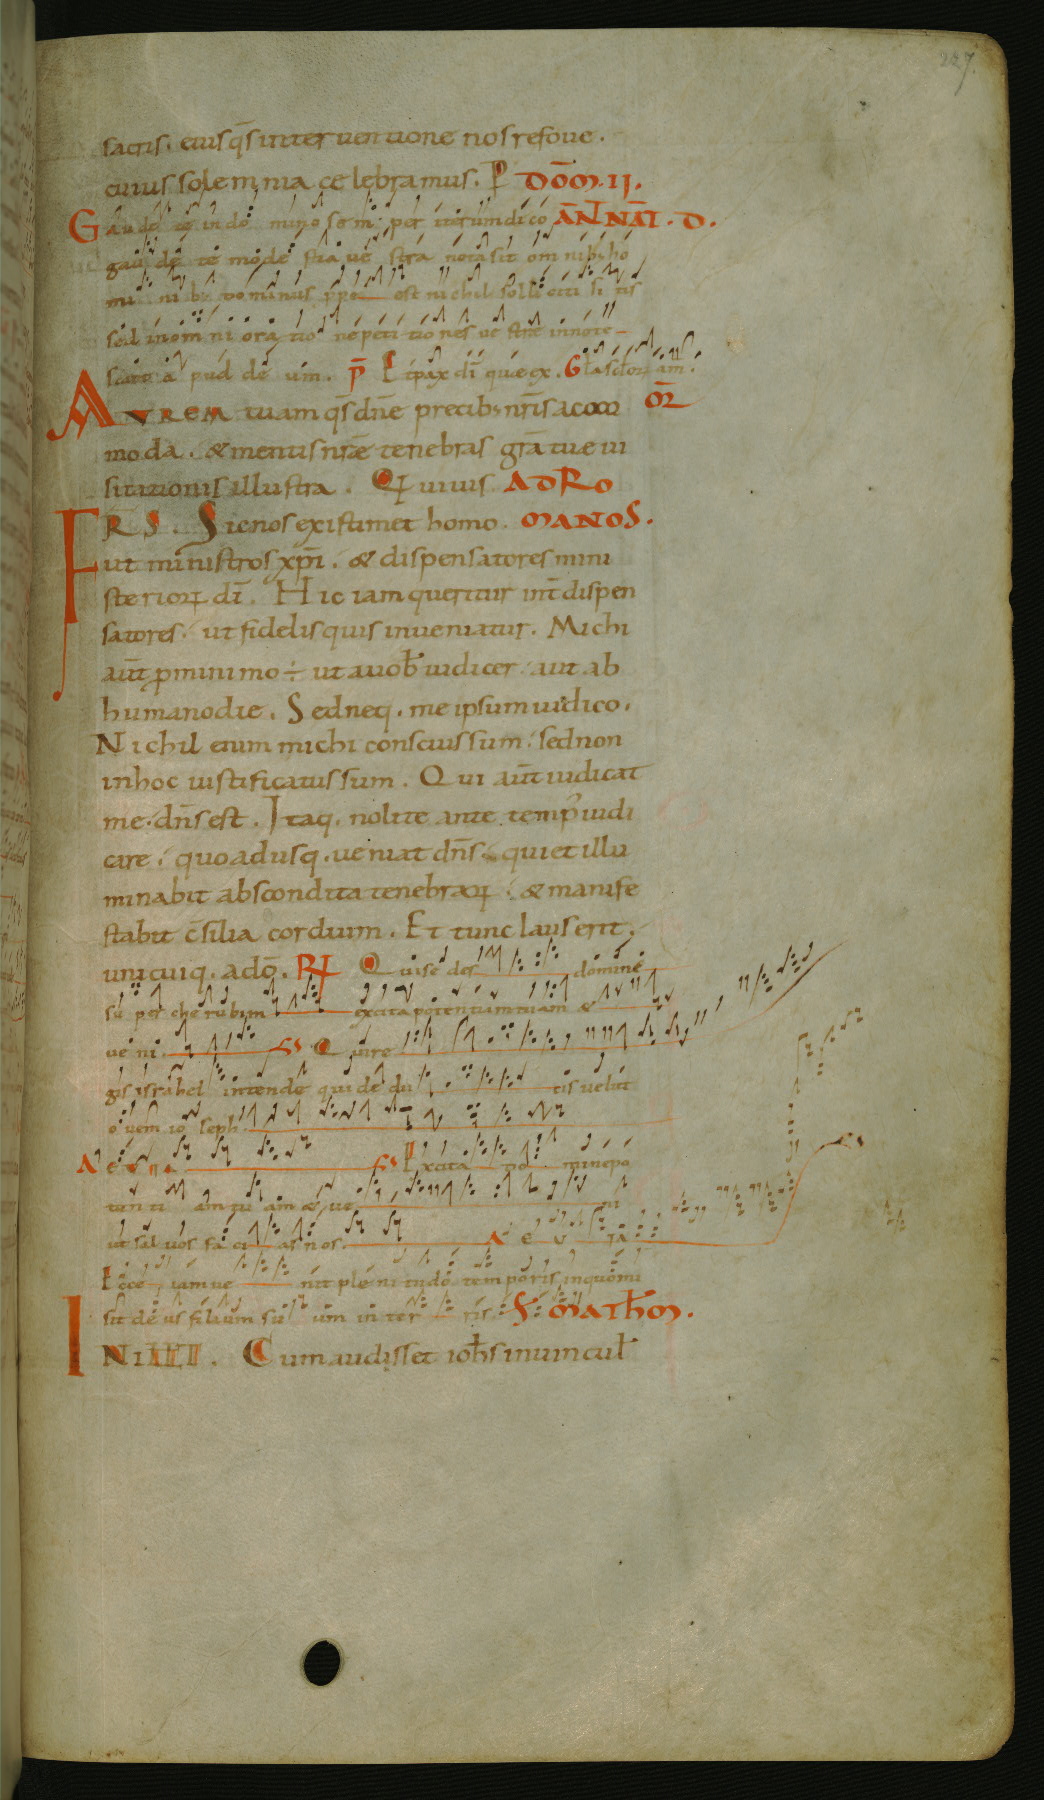 227.
sactis. eiusq̄s interventione nos refove.
cuius solemnia celebramus. P DOM̄. II.
Gaudete in domino semper iterum dico AN̄ NAT̄. D.
gaudete modestia vestra nota sit omnib; ho
minib; dominus prope est nichil solliciti sitis
sed in omni oratione petitiones vestrae innote
scant apud deum. P̄ Et pax dī quae ex. Gła scłorum am̄.
AUREM tuam q̄s dn̄e precib; nr̄is accom OR̄
moda. & mentis nrāe tenebras grā tue ui
sitationis illustra. Qui uiuis AD RO
FRS. Sic nos existimet homo. MANOS.
ut ministros xpī. & dispensatores mini
steriorum dī. Hic iam queritur int̄ dispen
satores. ut fidelis quis inveniatur. Michi
aūt pro minimo ÷ ut a vob̄ iudicer aut ab
humano die. Sed neq. me ipsum iudico.
Nichil enim michi conscius sum. sed non
in hoc iustificatus sum. Qui aūt iudicat
me. dn̄s est. Itaq. nolite ante temp iudi
care. quoadusq. veniat dn̄s. qui et illu
minabit abscondita tenebrarum. & manife
stabit c̄silia cordium. Et tunc laus erit.
unicuiq. a dō. R Qui sedes domine
super cherubim excita potentiam tuam &
veni. Qui re
gis israhel intende qui de du cis velut
ovem ioseph.
AEVIIA Excita domine po
tentiam tuam & ve ni
ut salvos facias nos. AEVIA
Ecce iam venit plenitudo temporis in quo mi
sit deus filium suum in terris. S. MATHM.
IN ILL. Cum audisset iohs in vincul